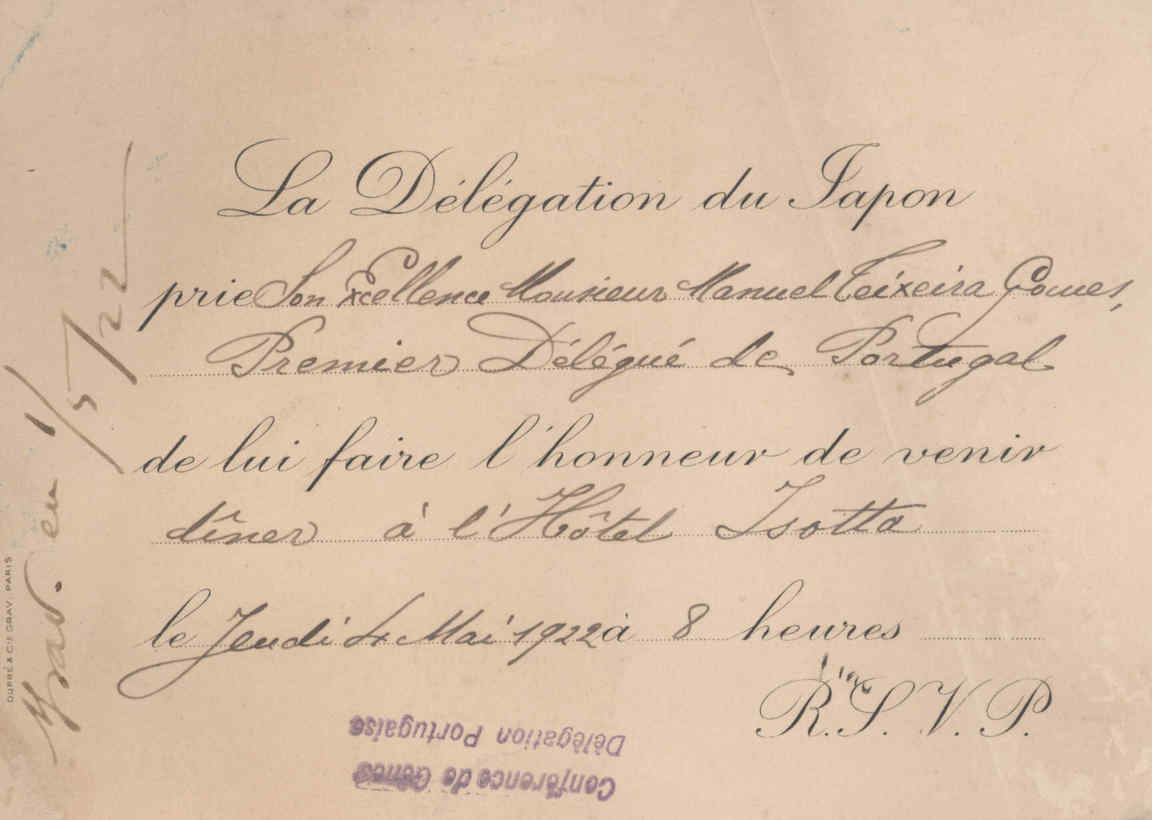 La Délégation du Japon
prie Son Excellence Monsieur Manuel Teixeira Gomes,
Premier Délégué de Portugal
de lui faire l'honneur de venir
dîner à l'Hôtel Isotta
le Jeudi 4 Mai 1922 à 8 heures
R.S.V.P.
Conférence de Gênes
Délégation Portugaise
en 1/5/22
DUPRÉ & CIE GRAV. PARIS